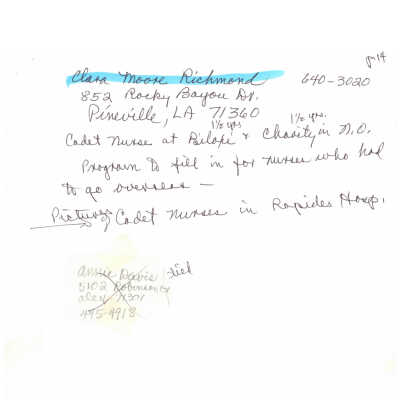 p-14
Clara Moore Richmond 640-3020
852 Rocky Bayou Dr.
Pineville, LA 71360
1½ yrs 1½ yrs.
Cadet Nurse at Biloxi & Charity in N.O.
Program to fill in for nurses who had
to go overseas —
Pictures of Cadet Nurses in Rapides Hosp.
Annie Davis died
5102 Robinson
alex 71301
445-4918